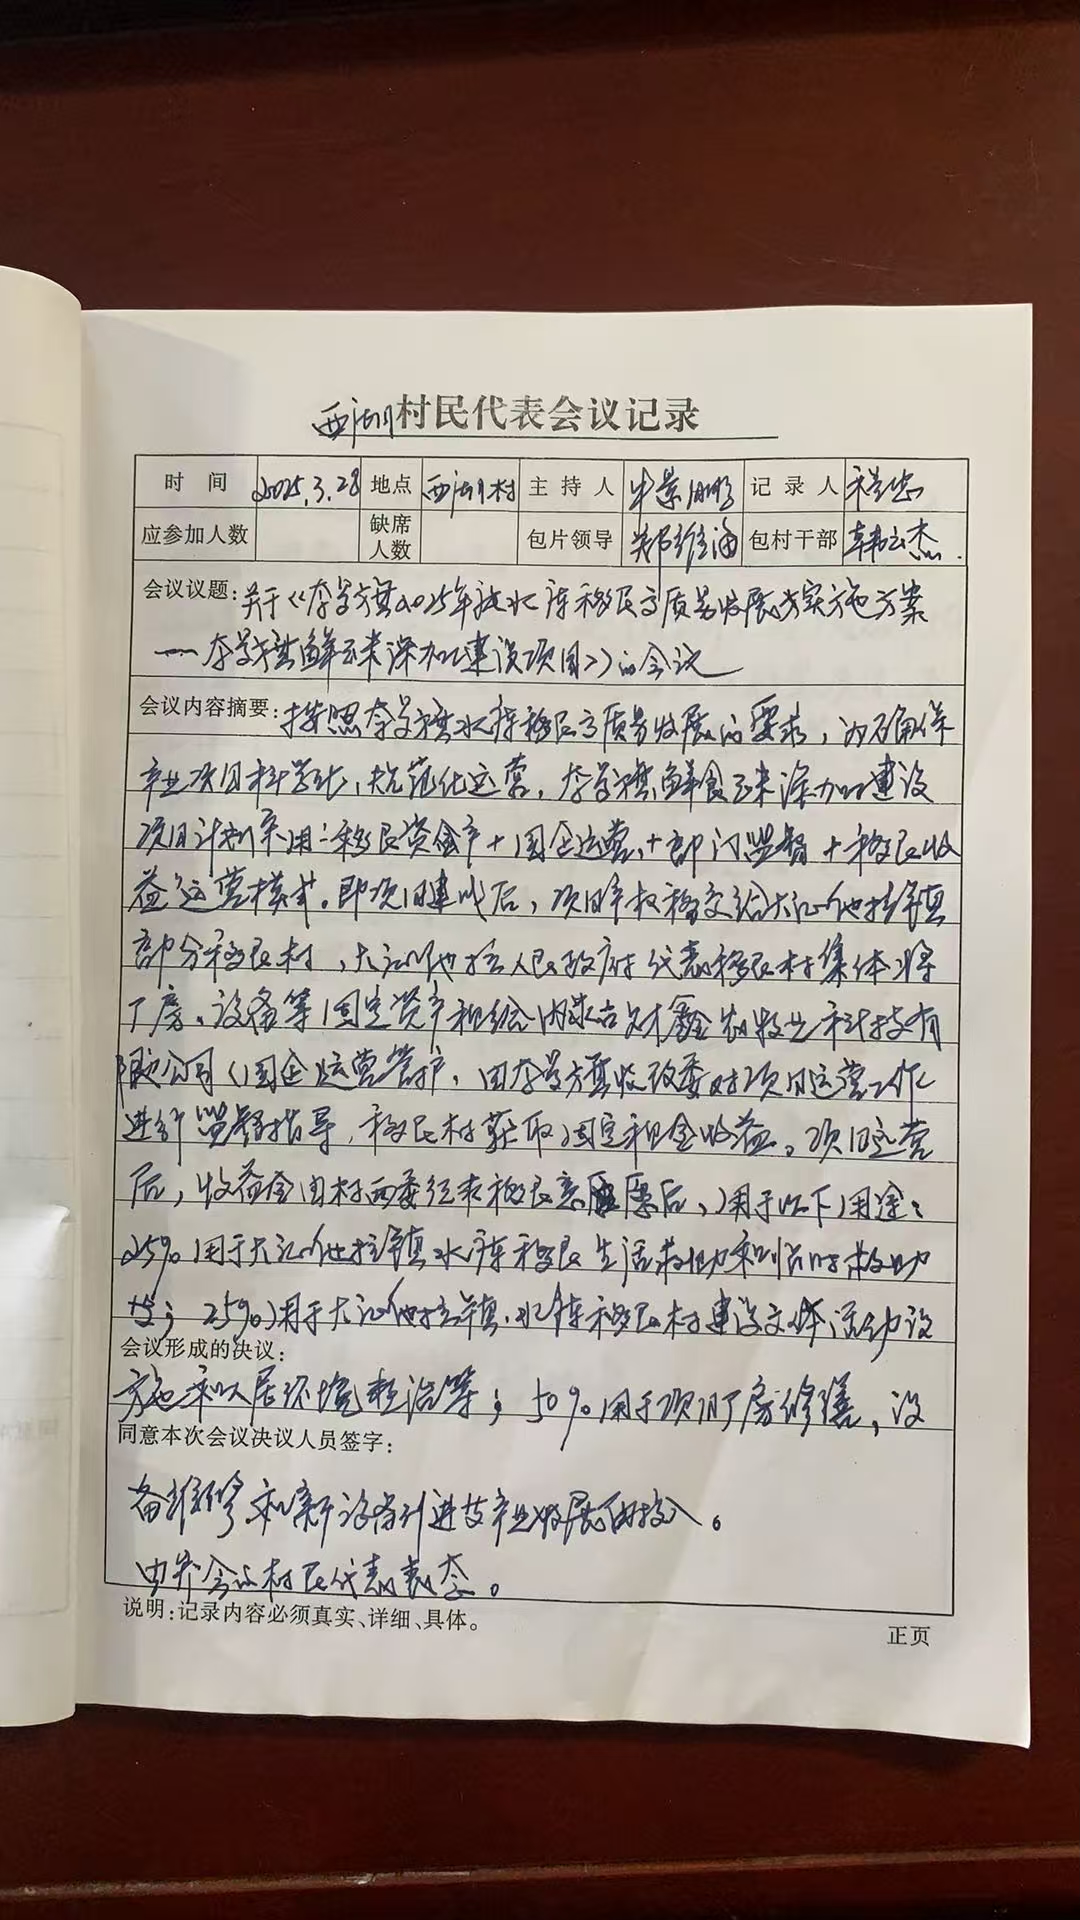 西湖村民代表会议记录
时间 2025.3.28 地点 西湖村 主持人 记录人
应参加人数 缺席人数 包片领导 郑维海 包村干部 韩玉杰
会议议题：关于《奈曼旗2025年度水库移民高质量发展实施方案
一奈曼旗鲜玉米深加工建设项目》的会议
会议内容摘要：按照奈曼旗水库移民高质量发展的要求，为确保
产业项目科学化、规范化运营，奈曼旗鲜食玉米深加工建设
项目计划采用：移民资金产+国企运营+部门监督+移民收
益运营模式。即项目建成后，项目产权移交给大沁他拉镇
部分移民村，大沁他拉人民政府代表移民村集体将
厂房、设备等固定资产租给内蒙古财鑫农牧业科技有
限公司（国企运营管护，由奈曼旗发改委对项目运营工作
进行监督指导，移民村获取固定租金收益。项目运营
后，收益金由村两委征求移民意愿后，用于以下用途：
25%用于大沁他拉镇水库移民生活救助和临时救助
等；25%用于大沁他拉镇水库移民村建设文体活动设
会议形成的决议：
施和人居环境整治等；50%用于项目厂房修缮，设
同意本次会议决议人员签字：
备维修和新设备引进及产业发展的投入。
由参会的村民代表表态。
说明：记录内容必须真实、详细、具体。
正页